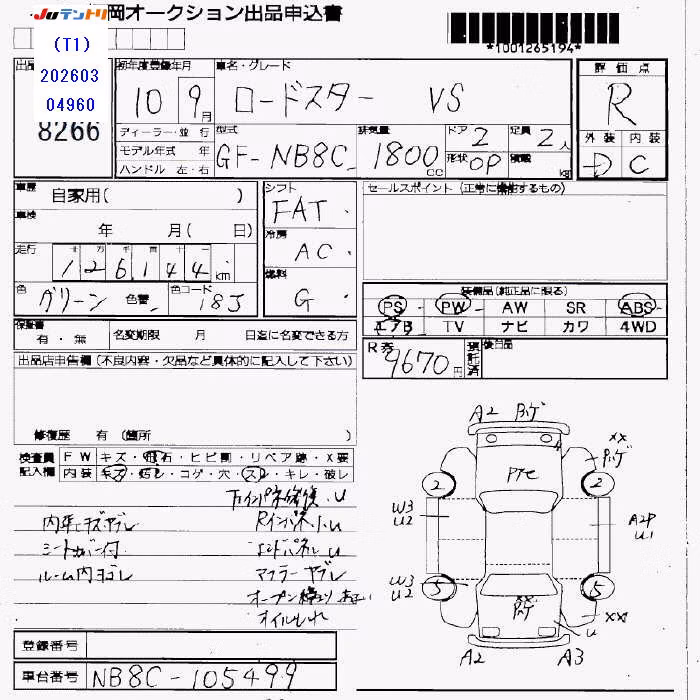 JUテントリ 岡オークション出品申込書
(T1)
202603
04960
*1001265194*
出品
8266
初年度登録年月
10 9月
車名・グレード
ロードスター VS
評価点
R
外装 内装
D C
ディーラー・並行
モデル年式 年
ハンドル 左・右
型式
GF-NB8C
排気量
1800cc
ドア 2
定員 2人
形状 OP
積載 kg
車歴 自家用( )
車検 年 月( 日)
走行 126144km
色 グリーン 色替 色コード 18J
シフト
FAT
冷房
AC
燃料
G
セールスポイント (正常に機能するもの)
装備品(純正品に限る)
PS PW AW SR ABS
エアB TV ナビ カワ 4WD
保証書 有・無
名変期限 月 日迄に名変できる方
R券 9670円
預託済
後日品
出品店申告欄(不良内容・欠品など具体的に記入して下さい)
修復歴 有 (箇所 )
検査員記入欄
FW キズ・飛石・ヒビ割・リペア跡・X要
内装 キズ・汚レ・コゲ・穴・スレ・キレ・破レ
内装キズヤブレ
シートカバー付
ルーム内ヨゴレ
Rインパネ小U
エンドパネルU
マフラーヤブレ
オイルもれ
A2
XX
2 2
W3
U2
A2P
U1
W3
U2
5 5
XX
U
A2 A3
登録番号
車台番号 NB8C-105499